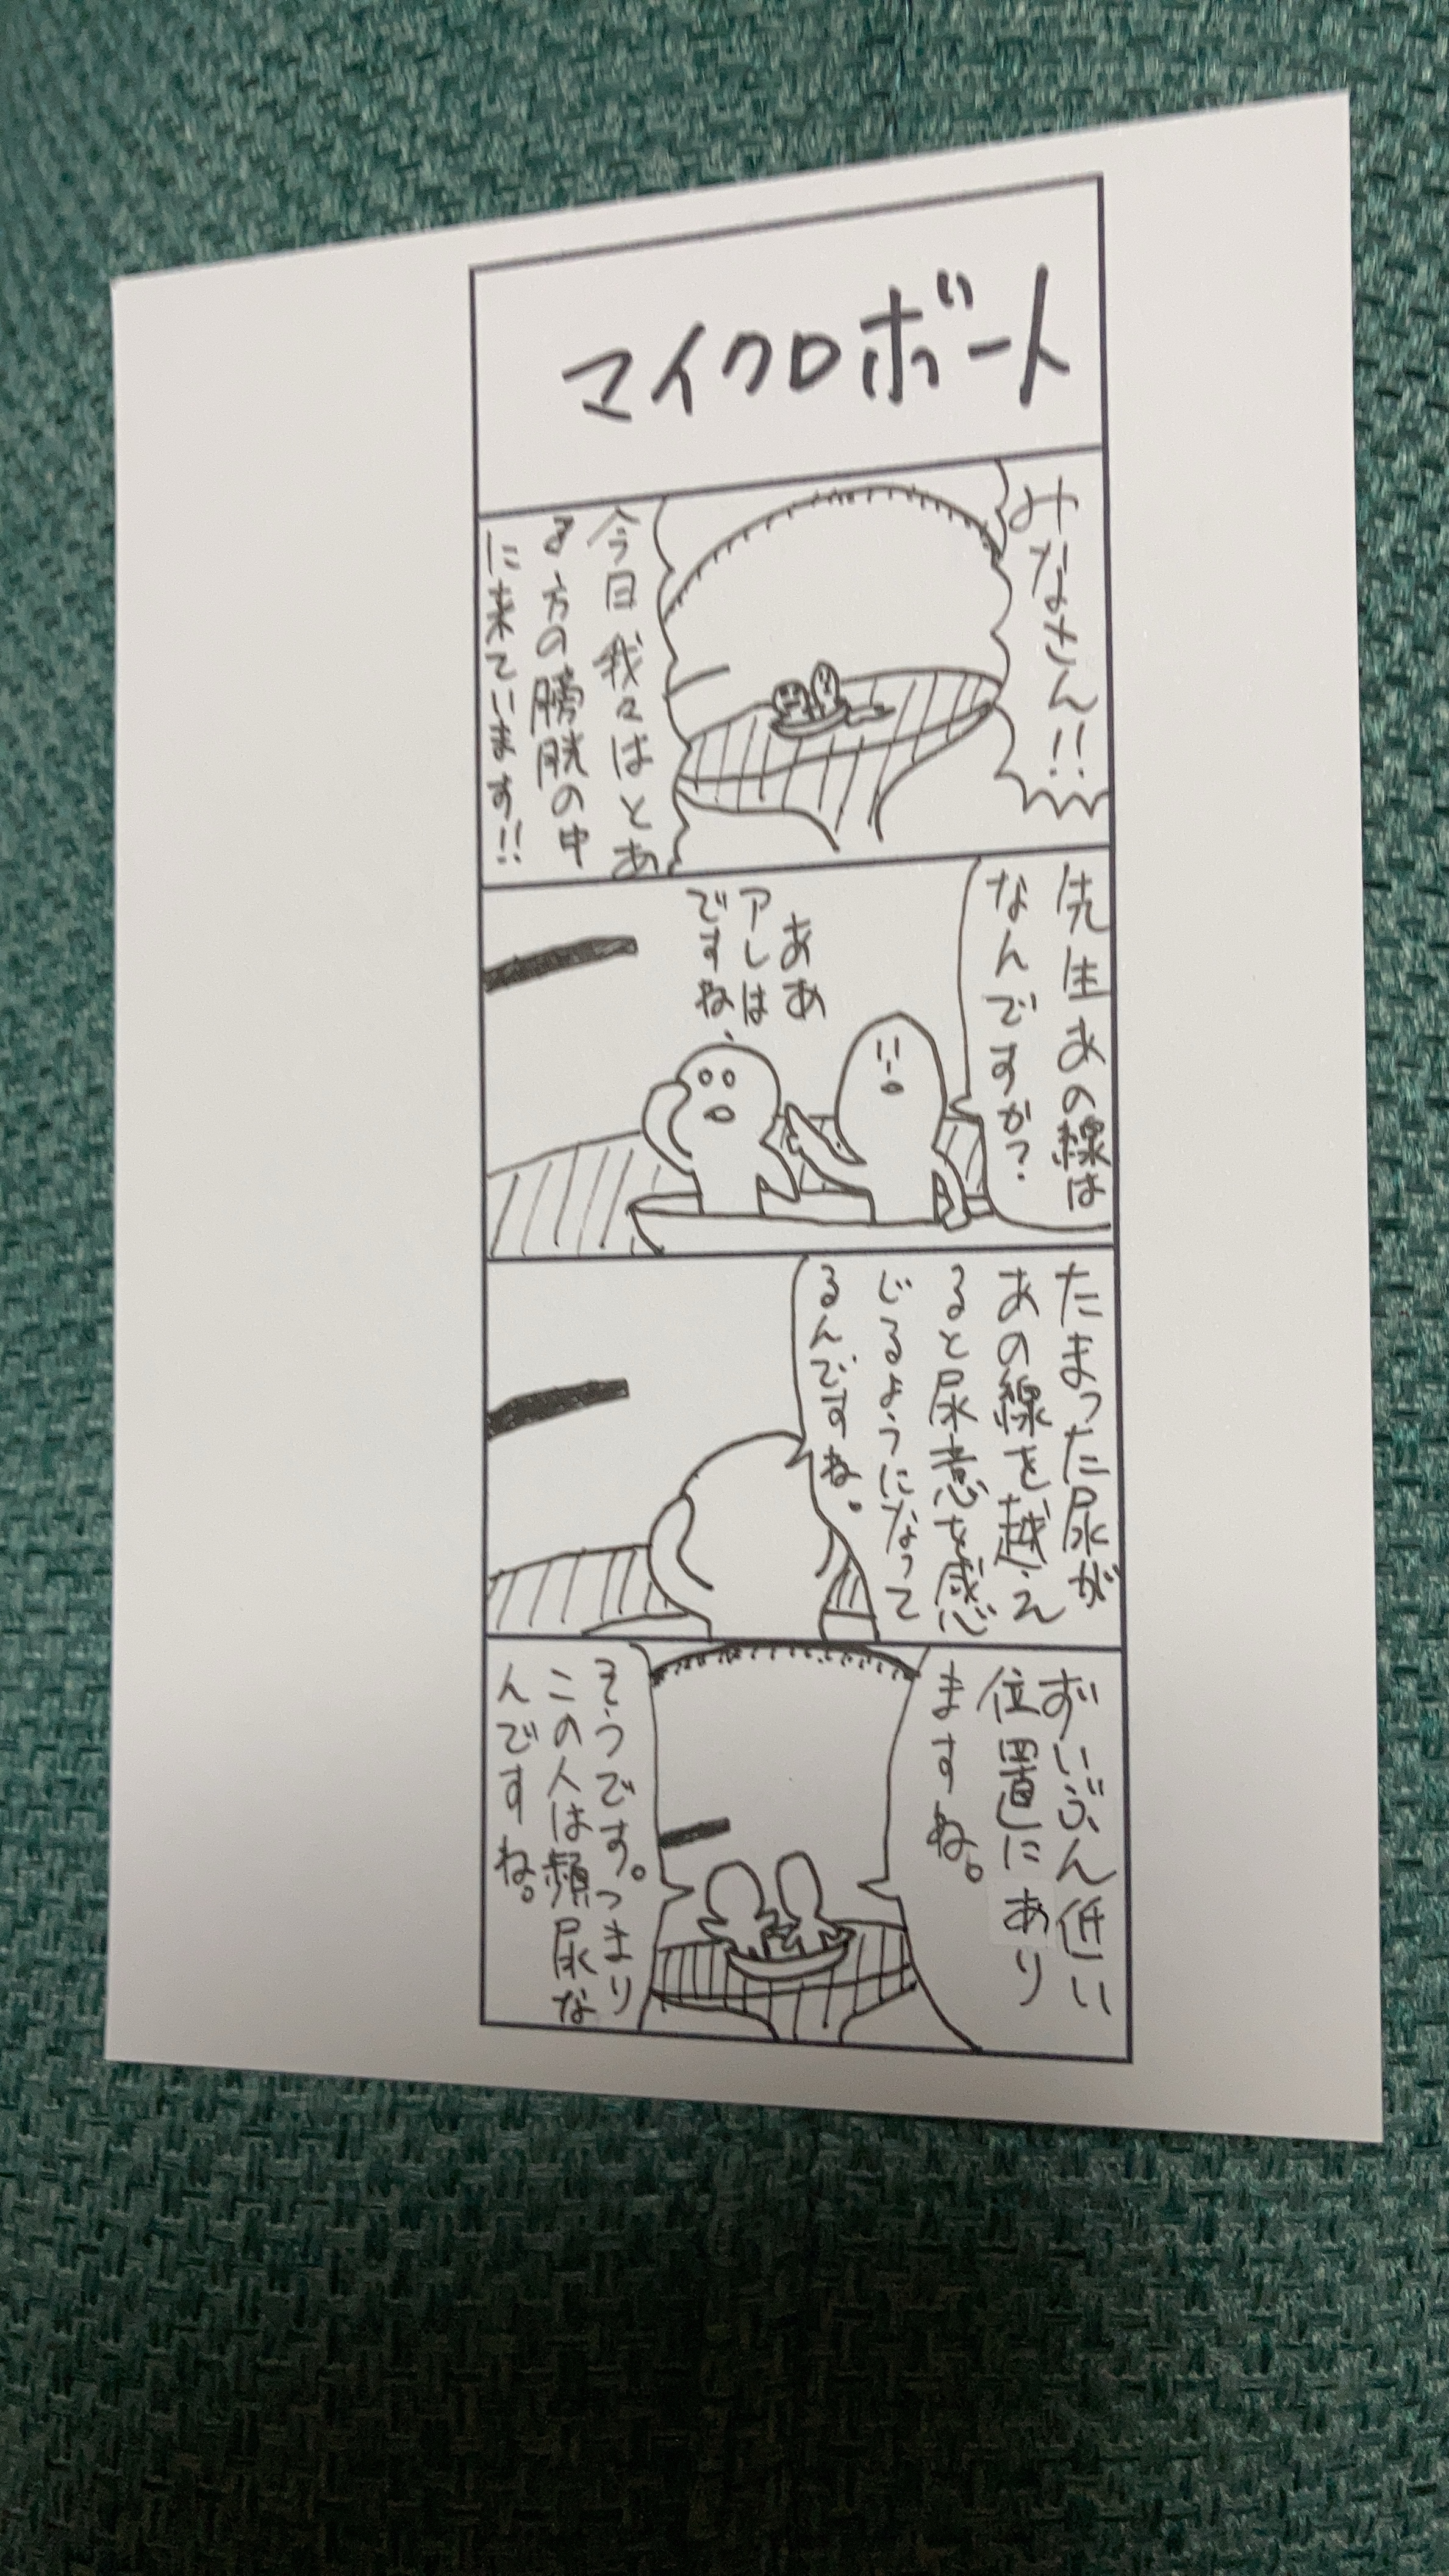 マイクロボート
みなさん!!
今日我々はとあ
る方の膀胱の中
に来ています!!
先生あの線は
なんですか?
ああ
アレは
ですね、
たまった尿が
あの線を越え
ると尿意を感
じるようになって
るんですね。
ずいぶん低い
位置にあり
ますね。
そうです。つまり
この人は頻尿な
んですね。